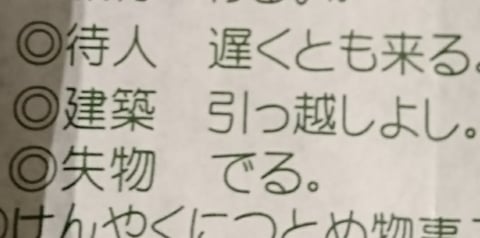 ◎待人 遅くとも来る。
◎建築 引っ越しよし。
◎失物 でる。
けんやくにつとめ物事